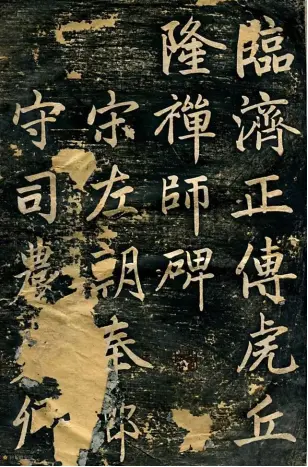 臨濟正傳虎丘
隆禪師碑
宋左朝奉郎
守司農